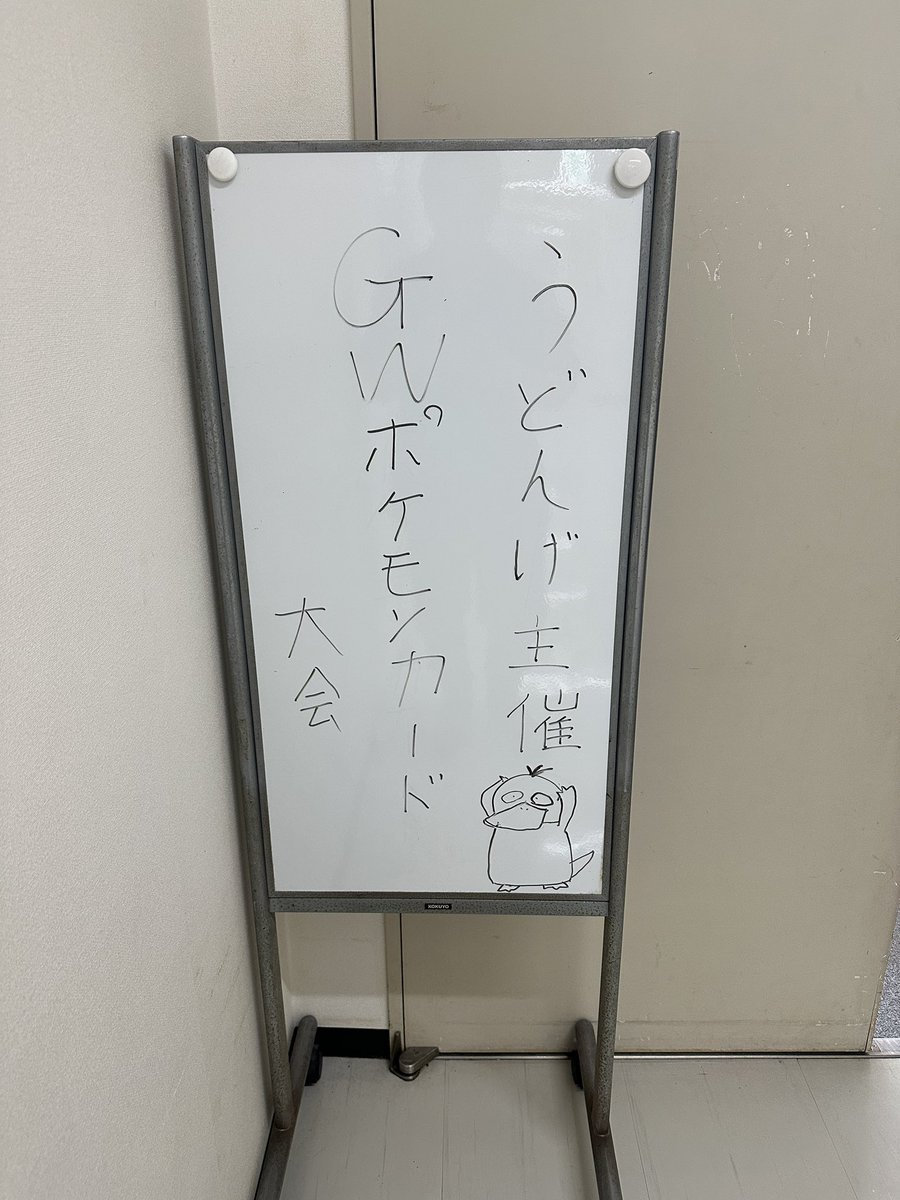 うどんげ主催
GWポケモンカード
大会
KOKUYO